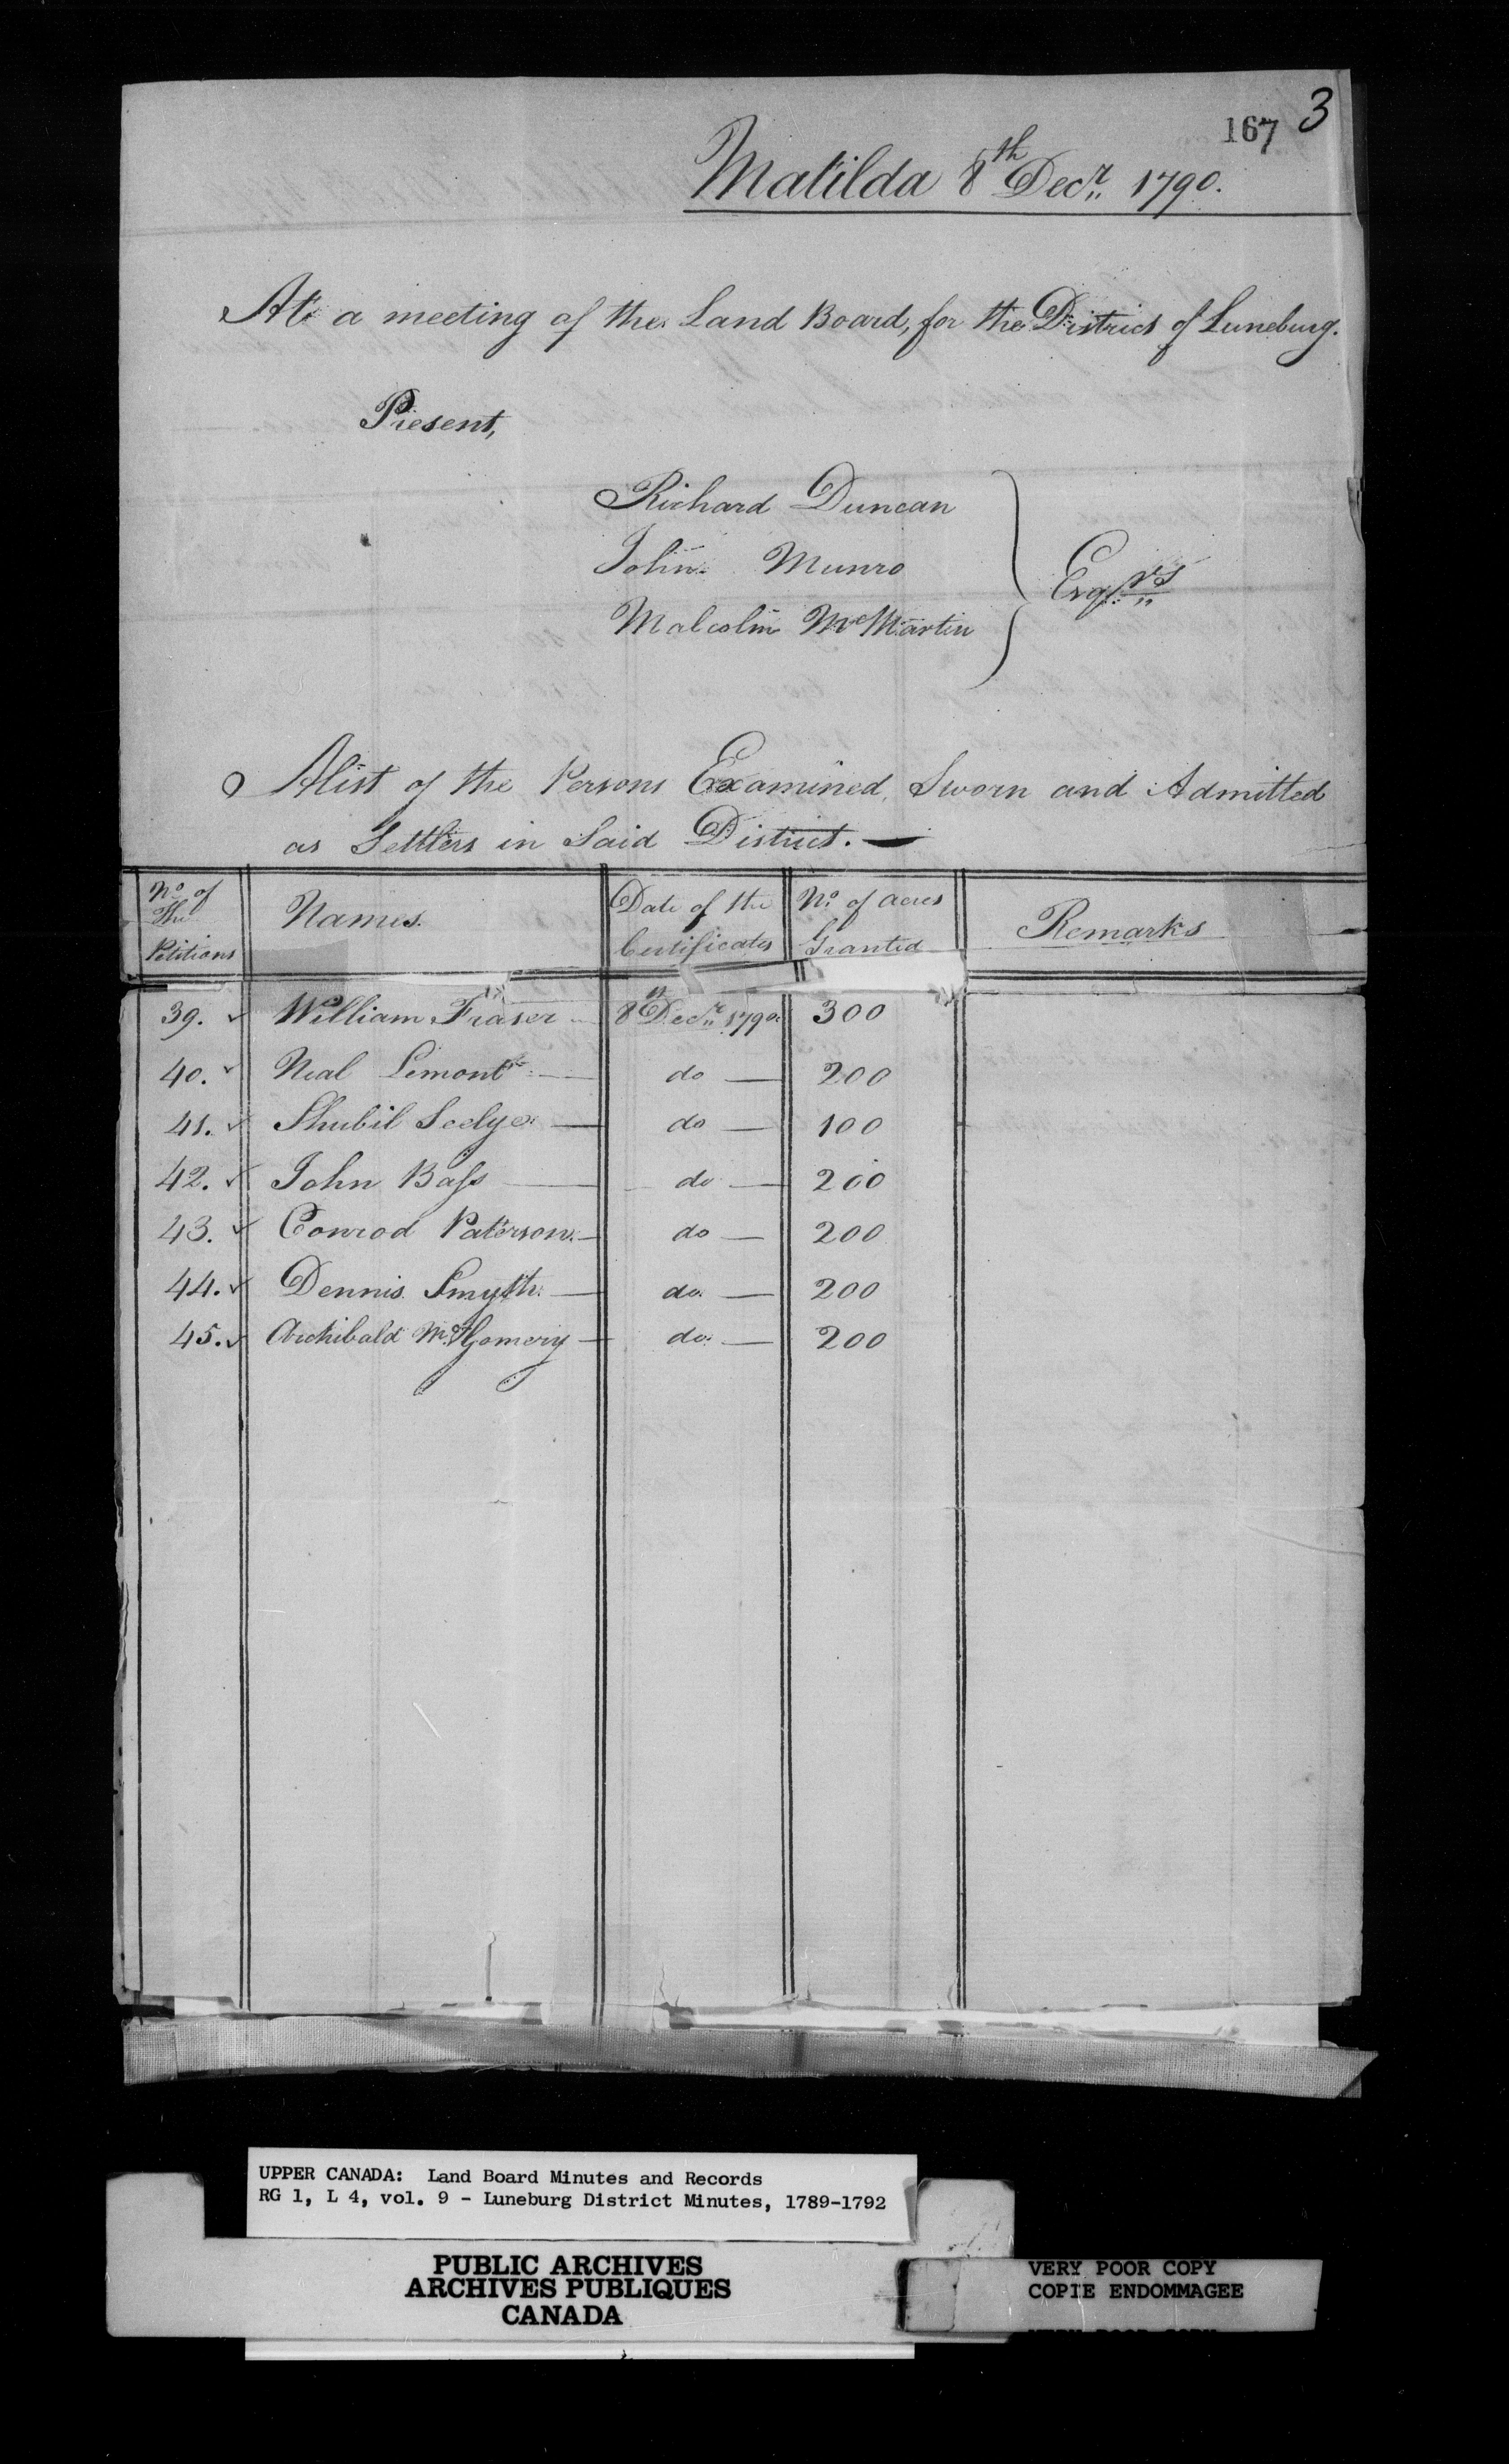 167 3
Matilda 8th Decr. 1790.
At a meeting of the Land Board, for the District of Luneburg.
Present,
Richard Duncan
John Munro
Malcolm McMartin
Esqrs
A list of the Persons Examined, Sworn and Admitted
as Settlers in Said District. —
No. of The Petitions | Names. | Date of the Certificates | No. of acres Granted | Remarks
39. William Fraser 8th Decr. 1790. 300
40. Neal Limont do 200
41. Shubil Seelye do 100
42. John Bass do 200
43. Conrod Paterson do 200
44. Dennis Smyth do 200
45. Archibald McGomery do 200
UPPER CANADA: Land Board Minutes and Records
RG 1, L 4, vol. 9 - Luneburg District Minutes, 1789-1792
PUBLIC ARCHIVES
ARCHIVES PUBLIQUES
CANADA
VERY POOR COPY
COPIE ENDOMMAGEE